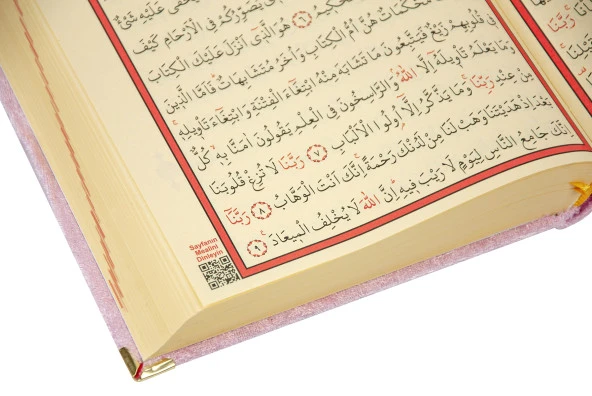 يَخْفٰى عَلَيْهِ شَيْءٌ
يُصَوِّرُكُمْ فِي الْاَرْحَامِ كَيْفَ
الْحَكِيمُ ﴿٦﴾ هُوَ الَّذٖٓي اَنْزَلَ عَلَيْكَ الْكِتَابَ
مُحْكَمَاتٌ هُنَّ اُمُّ الْكِتَابِ وَاُخَرُ مُتَشَابِهَاتٌ فَاَمَّا الَّذٖينَ
فٖي قُلُوبِهِمْ زَيْغٌ فَيَتَّبِعُونَ مَا تَشَابَهَ مِنْهُ ابْتِغَٓاءَ الْفِتْنَةِ وَابْتِغَٓاءَ تَأْوٖيلِهٖ
وَمَا يَعْلَمُ تَأْوٖيلَهُٓ اِلَّا اللّٰهُ وَالرَّاسِخُونَ فِي الْعِلْمِ يَقُولُونَ اٰمَنَّا بِهٖ كُلٌّ
مِنْ عِنْدِ رَبِّنَا وَمَا يَذَّكَّرُ اِلَّٓا اُولُوا الْاَلْبَابِ ﴿٧﴾ رَبَّنَا لَا تُزِغْ قُلُوبَنَا
بَعْدَ اِذْ هَدَيْتَنَا وَهَبْ لَنَا مِنْ لَدُنْكَ رَحْمَةً اِنَّكَ اَنْتَ الْوَهَّابُ ﴿٨﴾ رَبَّنَٓا
اِنَّكَ جَامِعُ النَّاسِ لِيَوْمٍ لَا رَيْبَ فٖيهِ اِنَّ اللّٰهَ لَا يُخْلِفُ الْمٖيعَادَ ﴿٩﴾
Sayfanın
Mealini
Dinleyin
رَبَّنَا